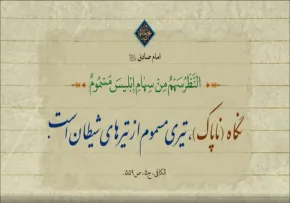 امام صادق (ع)
النَّظَرُ سَهْمٌ مِنْ سِهَامِ اِبْلِيسَ مَسْمُومٌ
نگاه (ناپاک)، تیری مسموم از تیرهای شیطان است.
الکافی، ج۵، ص۵۵۹